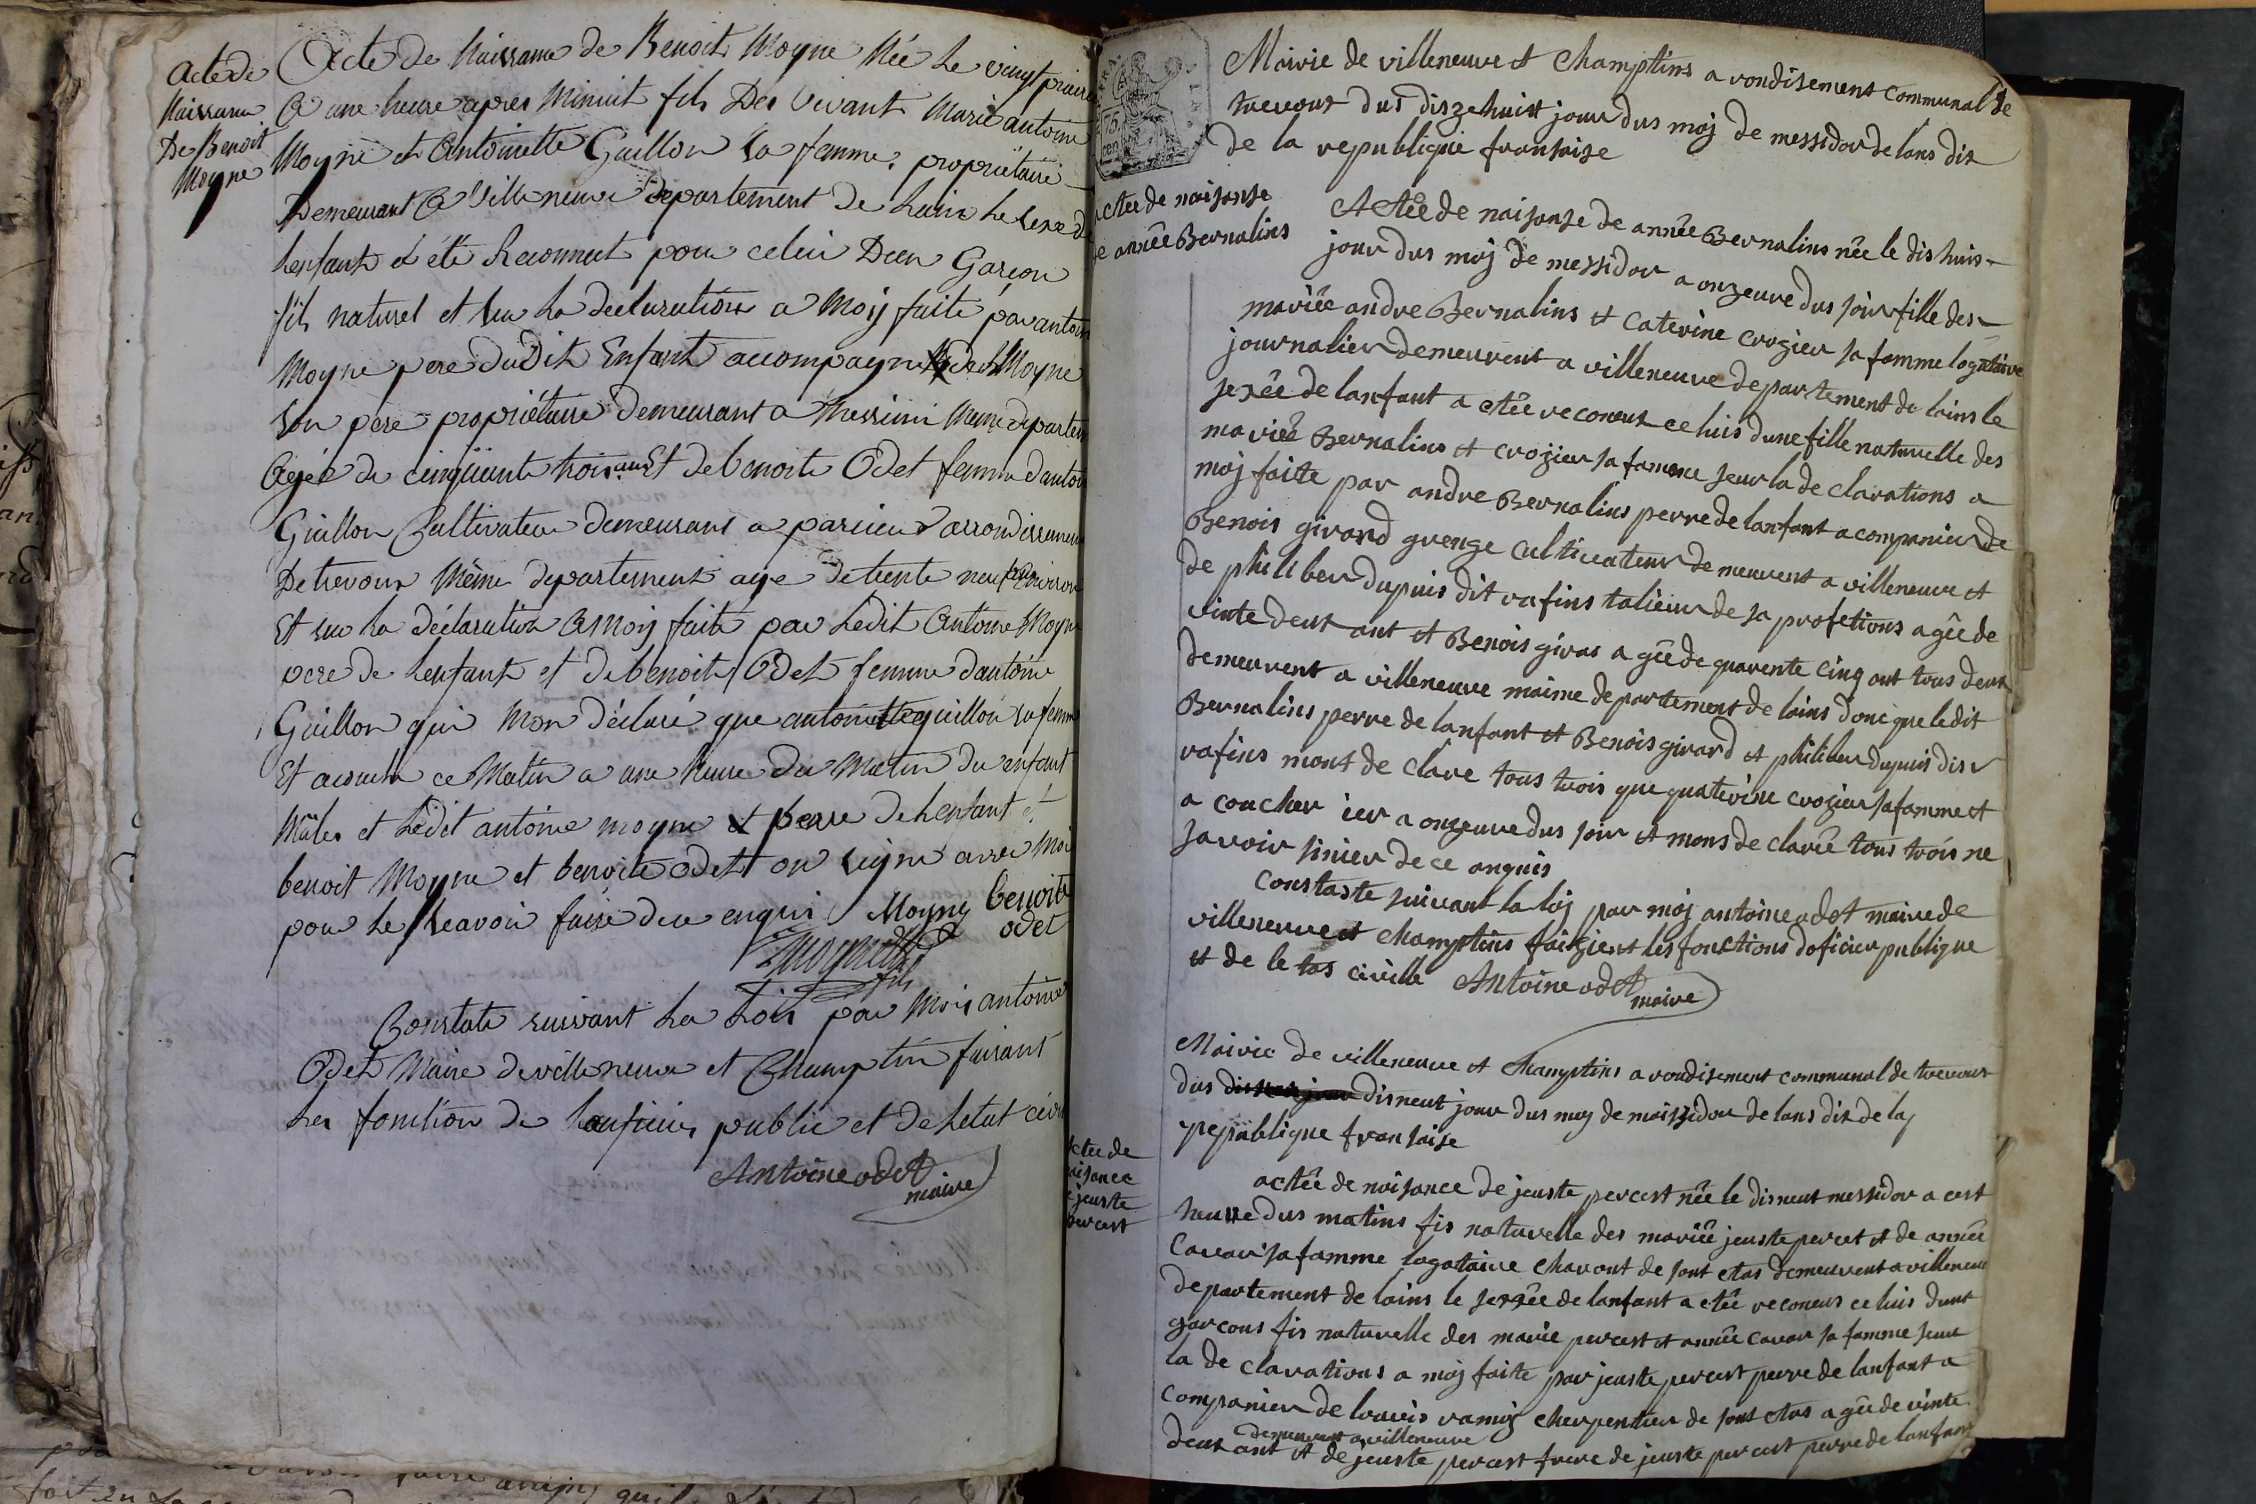 acte de
Naissance
De Benoit
Moyne
Acte de Naissance de Benoit Moyne Née Le vingt prairial
A une heure apres Minuit fils Des Vivant Marié antoine
Moyne et Antoinette Guillon Sa femme, propriétaire
Demeurant A Villeneuve departement de Lain Le sexe de
Lenfant à été Reconnut pour celui Deen Garçon
fils naturel et Sur La declaration a Moy faite par antoine
Moyne pere DuDit Enfant accompagné de Moyne
Son pere propriétaire Demeurant a Messimi Meme departem
Agée de cinquante trois ans Et de benoite Odet femme dantoin
Guillon Cultivateur Demeurant a parcieu Darrondissement
De trevoux Même departement age de trente neuf Environ
Et sur La déclaration A Moy faite par Ledit Antoine Moyne
pere de Lenfant et de benoite Odet femme dantoine
Guillon qui Mon déclaré que antoinette guillon sa femme
Et acouche ce Matin a une heure du Matin du enfant
Mâles et Ledit antoine moyne et perre de Lenfant et
benoit Moyne et benoite odet on signé avec Moi
pour Le Scavoir faire dece enquri Moyne benoite
odet
fils
Constate suivant La Loi par Moi antoine
Odet Maire de villeneuve et Champtin faisant
Les fonction de Loufficier public et de Letat civil
Antoine odet
maire
Mairie de villeneuve et Champtins a rondisement communal de
trevout dus diszehuist jour dus moj de messidor de lans dix
de la republique fransaise
actée de naisanse
de année Bernalins
Actée de naisanse de année Bernalins née le dis huis
jour dus moj de messidor a onzeure dus soir fille des
mariée andre Bernalins et Caterine crozier sa famme logataire
journalier demeurent a villeneuve departement de lains le
sexée de lanfant a etée reconeut celuis dune fille naturelle des
mariée Bernalins et crozier sa famme seur la de clarations a
moj faite par andre Bernalins perre de lanfant acompanier de
Benois girard grenge cultivateur demeurent a villeneuve et
de philiber dupuis dit rafins talieur de sa profetions agée de
vinte deut ant et Benois giras agée de quarente cinq ant tous deut
demeurent a villeneuve maime departement de lains donc que ledit
Bernalins perre de lanfant et Benois girard et philiber dupuis dis
rafins mont de clare tous trois que quaterine crozier sa famme et
a coucher ier a onzeure dus soir et mons de clarée tous trois ne
savoir sinier de ce anquis
constaste suivant la loj par moj antoine odet maire de
villeneuve et champtins faizient les fonctions doficier publique
et de le tas civille Antoine odet
maire
Mairie de villeneuve et Champtins a rondisement communal de trevout
dus disneut jour dus moy de maissidor de lans dix de la
republique fransaise
actée de
naisance
de jeuste
percert
actée de naisance de jeuste percert née le disneut messidor a cest
heure dus matins fis naturelle des mariée jeuste percet et de année
Cavar sa famme logataire charont de sont etas demeurent a villeneuve
departement de lains le sexée de lanfant a etée reconeus celuis dunt
garcons fis naturelle des marie percert et année cavar sa famme seur
la de clarations a moj faite par jeuste percert perre de lanfant a
companier de louvis ramis cherpentier de sont etas agée de vinte
demeurant a villeneuve
deut ant et de jeuste percert frere de jeuste percert perre de lanfant